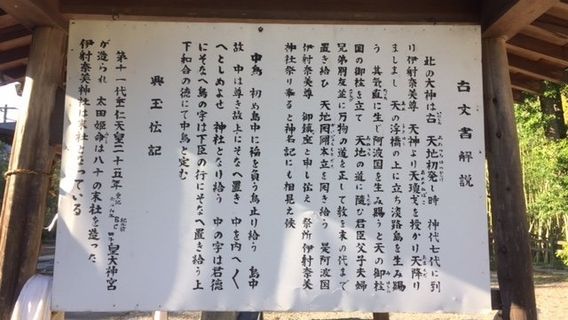 古文書解説
此の大神は古 天地初発し時 神代七代に到
り伊射奈美尊 天神より天瓊戈を授かり天降り
ましまし 天の浮橋の上に立ち淡路島を生み賜
う 其笠直に生じ阿波国を生み賜うと天の御柱
国の御柱を立て 天地の道に随ひ君臣父子夫婦
兄弟朋友並に万物の道を正して教を末の代まで
置き給ひ 天地開闢本立を開き給う 是阿波国
伊射奈美尊 御鎮座と申し伝え 祭所伊射奈美
神社祭り奉ると神名記にも相見え候
中鳥 初め島中に稲を負う鳥止り給う 島中
故 中は尊き故上にそなへ置き 中を内へく
へとしめよせ 神社となり給う 中の字は君徳
にそなへ鳥の字は下臣の行にそなへ置き給う上
下和合の徳にて中鳥と定む
興王伝記
第十一代垂仁天皇二十五年 皇大神宮
が造られ 太田姫命は八十の末社を造った
伊射奈美神社は末社となっている